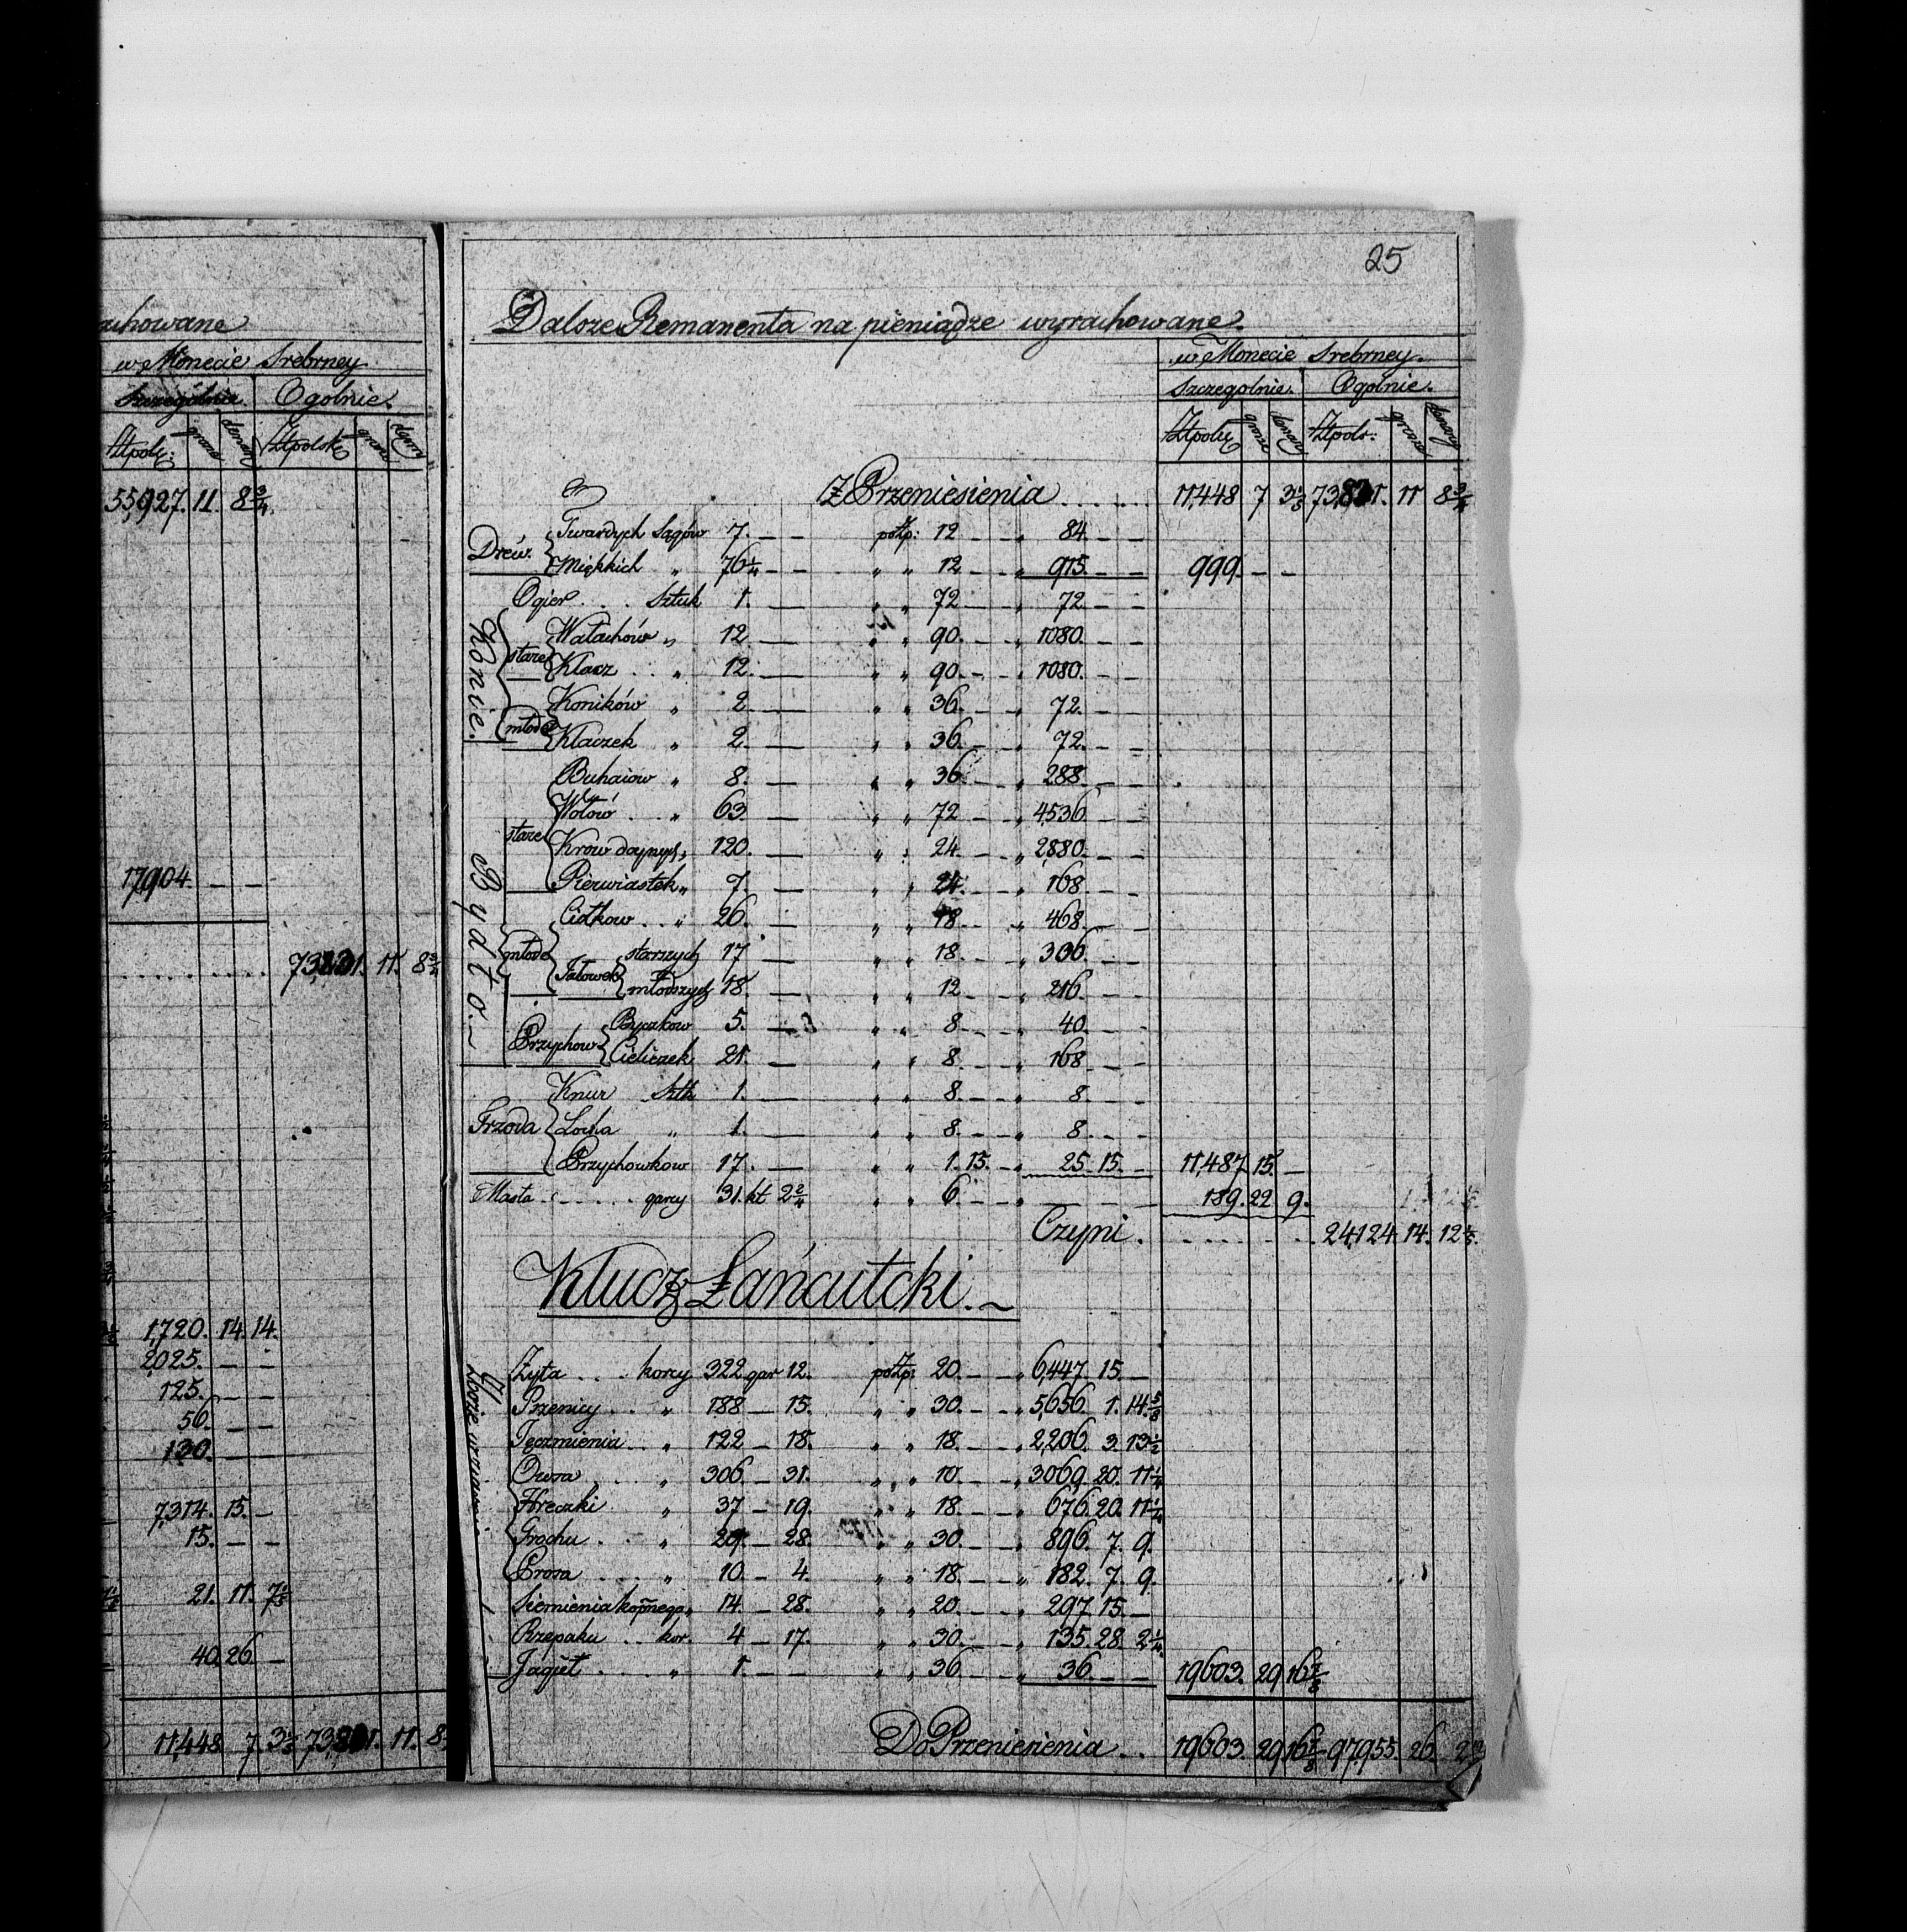 achowane
w Monecie Srebrney
Szczególnie. Ogolnie.
Złpols: grosz denar Złpolsk grosz denar
55,927. 11. 8 3/4
17,904. — —
73,831. 11. 8 3/4
1,720. 14. 14.
2,025. — —
125. — —
56. — —
130. — —
7,314. 15. —
15. — —
21. 11. 7 1/5
40. 26. —
11,448 7. 3 1/5 73,831. 11. 8
25
Dalsze Remanenta na pieniądze wyrachowane.
w Monecie Srebrney.
Szczegolnie. Ogólnie.
Złpolu grosz denar Złpols: grosz denary
Z Przeniesienia 11,448 7 3 1/5 73,831. 11 8 3/4
Drew. Twardych Sągów 7. — — po złp: 12 — — „ 84. — —
Miękkich „ 76 1/4 — — „ „ 12 — — „ 915. — — 999. — —
Ogier Sztuk 1. — „ „ 72 — — „ 72. — —
Konie. stare Wałachów „ 12 — „ „ 90. — — „ 1080. — —
Klacz „ 12. — „ „ 90. — — „ 1080. — —
młode Koników „ 2. — „ „ 36. — — „ 72. — —
Klaczek „ 2. — „ „ 36. — — „ 72. — —
Bydło. stare Buhaiow „ 8. — „ „ 36. — — „ 288. — —
Wołów „ 63. — „ „ 72 — — „ 4,536. — —
Krow doynych „ 120. — „ „ 24. — — „ 2880. — —
Pierwiastek „ 7. — „ „ 24. — — „ 168 — —
młode Ciołkow „ 26. — „ „ 18. — — „ 468. — —
Jałowek starszych 17 — „ „ 18. — — „ 306. — —
młodszych 18. — „ „ 12 — — „ 216. — —
Przychow Byczkow 5. — „ „ 8 — — „ 40. — —
Cieliczek 21. — „ „ 8. — — „ 168 — —
Trzoda Knur Sztk 1. — „ „ 8. — — „ 8. — —
Locha „ 1. — „ „ 8. — — „ 8. — —
Przychowkow 17. — „ „ 1. 15. — „ 25. 15. — 11,487. 15. —
Masła garcy 31. kt 2 2/4 „ „ 6. — — „ — — 189. 22. 9.
Czyni. 24,124. 14. 12 1/5.
Klucz Łańcutcki.
Zboże
Żyta korcy 322 gar 12. po złp: 20. — — „ 6,447. 15. —
Przenicy „ 188 — 15. „ „ 30. — — „ 5,656. 1. 14 5/8
Jęczmienia „ 122 — 18. „ „ 18. — — „ 2,206. 3. 13 1/2
Owsa „ 306 — 31. „ „ 10. — — „ 3069. 20. 11 1/4
Hreczki „ 37 — 19. „ „ 18. — — „ 676. 20. 11 1/4
Grochu „ 29. — 28. „ „ 30. — — „ 896. 7. 9.
Prosa „ 10. — 4. „ „ 18. — — „ 182. 7. 9.
Siemienia kopnego „ 14. — 28. „ „ 20. — — „ 297. 15. —
Rzepaku kor. 4 — 17. „ „ 30. — — „ 135. 28. 2 1/4
Jagieł „ 1. — — „ „ 36. — — „ 36. — — 19603. 29 16 7/8
Do Przeniesienia 19603. 29 16 7/8 97,955. 26. 2